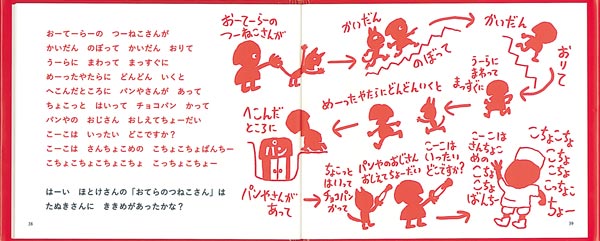 おーてーらーの つーねこさんが
かいだん のぼって かいだん おりて
うーらに まわって まっすぐに
めーったやたらに どんどん いくと
へこんだところに パンやさんが あって
ちょこっと はいって チョコパン かって
パンやの おじさん おしえてちょーだい
こーこは いったい どこですか？
こーこは さんちょこめの こちょこちょばんちー
こちょこちょこちょこちょ こっちょこちょー
はーい ほとけさんの「おてらのつねこさん」は
たぬきさんに ききめがあったかな？
38
おーてーらーの
つーねこさんが
かいだん
のぼって
かいだん
おりて
うーらに
まわって
まっすぐに
めーったやたらにどんどんいくと
へこんだ
ところに
パン
パンやさんが
あって
ちょこっと
はいって
チョコパン
かって
パンやのおじさん
おしえてちょーだい
こーこは
いったい
どこですか？
こーこは
さんちょこ
めの
こちょ
こちょ
ばんちー
こちょこちょ
こちょ
こちょ
こっちょ
こちょー
39